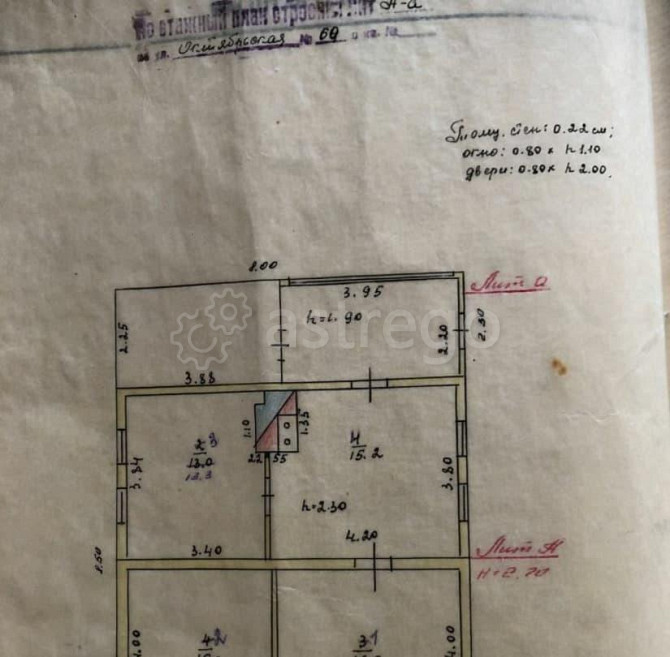 По этажный план строения лит А-а
по ул. Октябрьская № 69
Толщ. стен: 0.22 см;
окно: 0.80 x h 1.10
двери: 0.80 x h 2.00
8.00
Лит а
3.95
h=1.90
2.25
2.20
2.30
astrego
3.88
1.10
1.35
2 3
13.0
12.3
4
15.2
22
55
3.84
3.80
h=2.30
4.20
3.40
8.50
Лит А
H=2.70
4 2
3 1
4.00
4.00